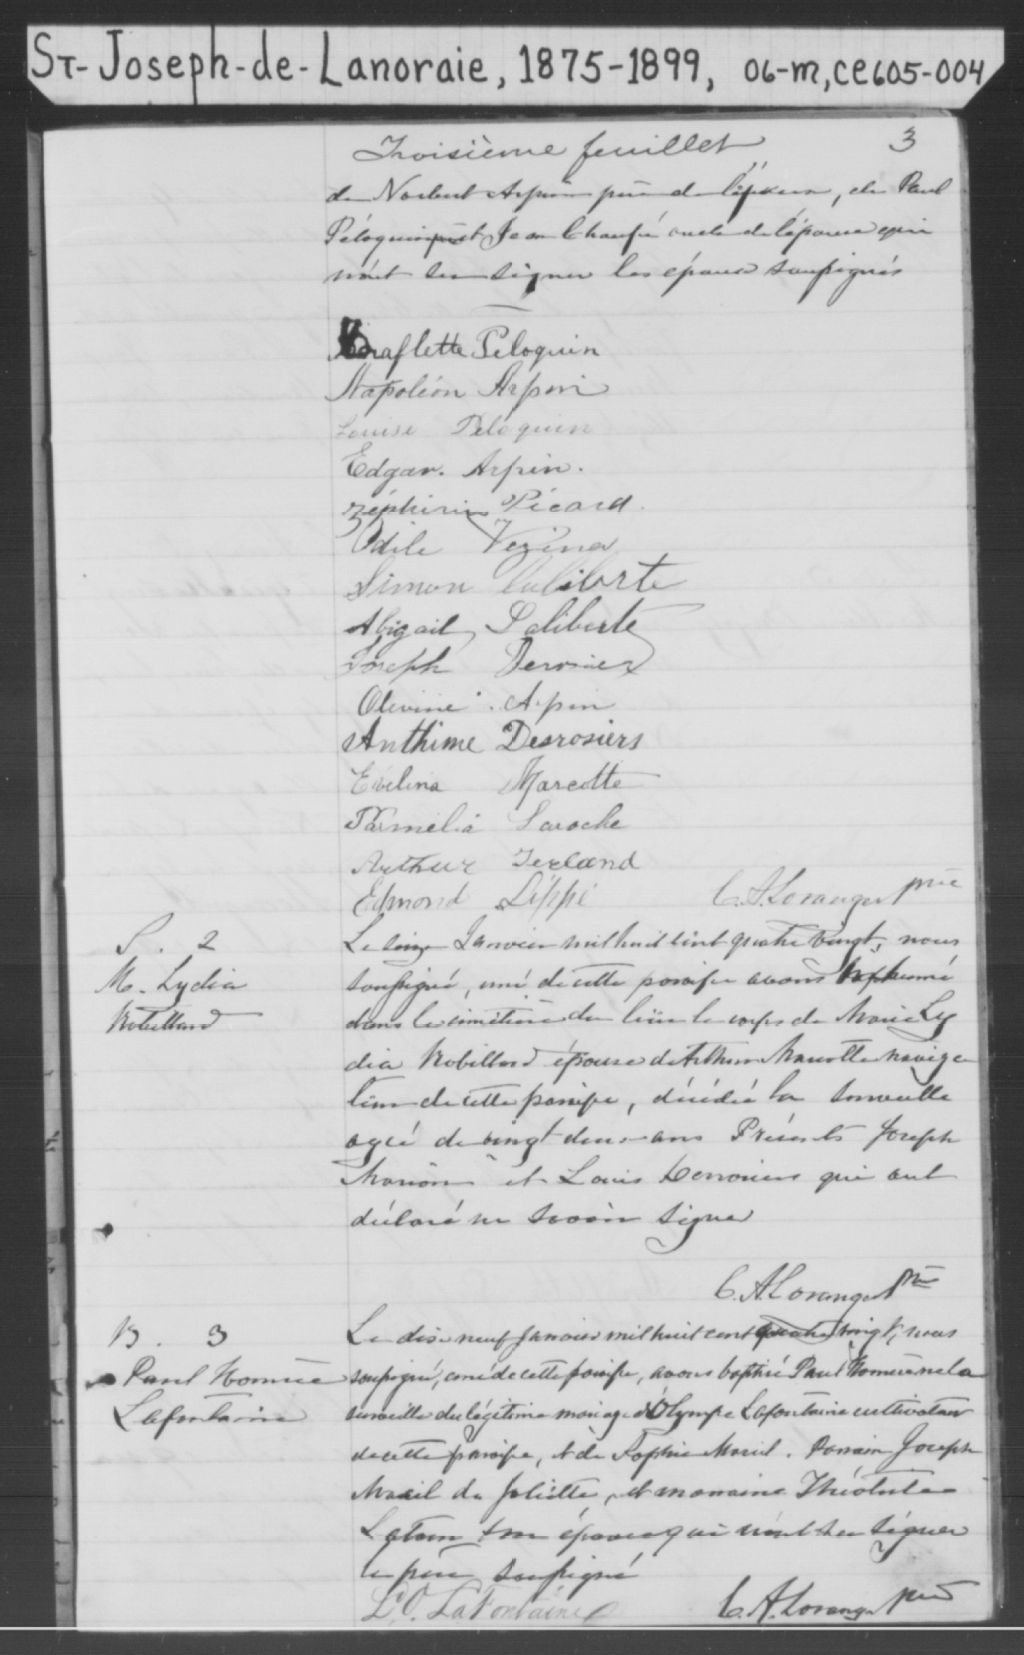 ST-Joseph-de-Lanoraie, 1875-1899, 06-M, CE605-004
Troisième feuillet 3
de Norbert Arpin père de l'époux, de Paul
Péloquin et Jean Chaufé oncle de l'épouse qui
n'ont su signer les époux soussignés
Péloquin
Napoléon Arpin
Louise Péloquin
Edgar. Arpin.
Zéphirin Picard.
Odile Vezina
Simon Laliberté
Abigail Laliberté
Joseph Derosiers
Olivine Arpin
Anthime Desrosiers
Evelina Marcotte
Parmélia Laroche
Arthur Ferland
Edmond Lippé C. A. Loranger ptre
S. 2 Le Janvier mil huit cent quatre vingt, nous
M. Lydia soussigné, curé de cette paroisse avons inhumé
Robillard dans le cimetière du lieu le corps de Marie Ly
dia Robillard épouse de Arthur Marcotte naviga
teur de cette paroisse, décédée la
agée de vingt deux ans Présents Joseph
et Louis Derosiers qui ont
déclaré ne savoir signer
C. A. Loranger Ptre
B. 3 Le dix neuf Janvier mil huit cent quatre vingt, nous
Paul Homère soussigné, curé de cette paroisse, avons baptisé Paul Homère né la
Lafontaine surveille du légitime mariage d'Olympe Lafontaine cultivateur
de cette paroisse, et de Sophie Maril. Parrain Joseph
Maril de Joliette, et marraine Théotiste
son épouse qui n'ont su signer
le père soussigné
L. O. LaFontaine C. A. Loranger ptre